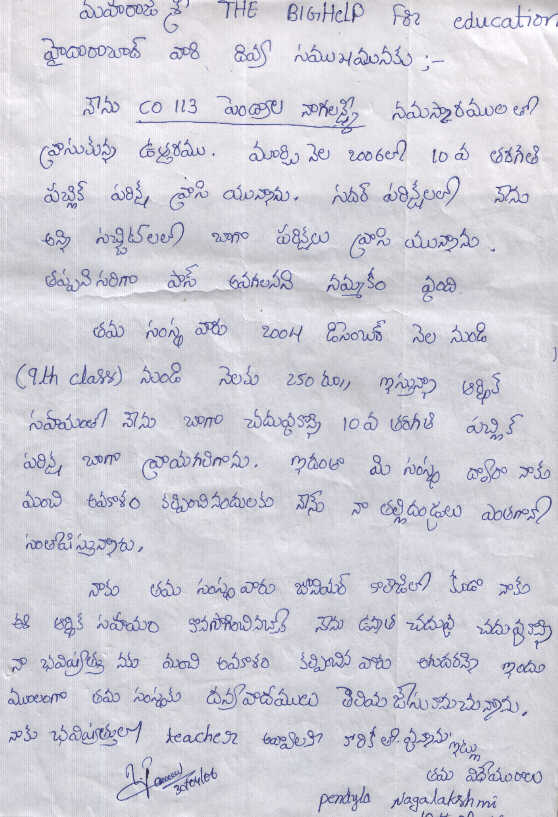 మహారాజశ్రీ THE BIGHELP For education
హైదారాబాద్ వారి దివ్య సముఖమునకు ;-
నేను CO 113 పెండ్యాల నాగలక్ష్మి నమస్కారములతో
వ్రాసుకున్న ఉత్తరము. మార్చి నెల 2006లో 10 వ తరగతి
పబ్లిక్ పరీక్ష వ్రాసి యున్నాను. సదర్ పరీక్షలలో నేను
అన్ని సబ్జెక్ట్‌లలో బాగా పరీక్షలు వ్రాసి యున్నాను.
తప్పనిసరిగా పాస్ అవగలనని నమ్మకం వుంది
తమ సంస్థ వారు 2004 డిసెంబర్ నెల నుండి
(9th class) నుండి నెలకు 250 రూ,, ఇస్తున్నా ఆర్థిక
సహాయంతో నేను బాగా చదువుకొని 10 వ తరగతి పబ్లిక్
పరీక్ష బాగా వ్రాయగలిగాను. ఇదంతా మి సంస్థ ద్వారా నాకు
మంచి అవకాశం కల్పించినందులకు నేను నా తల్లిదండ్రులు ఎంతగానో
సంతోషిస్తున్నారు.
నాకు తమ సంస్థ వారు జూనియర్ కాలేజిలో కూడా నాకు
ఈ ఆర్థిక సహాయం కొనసాగించినట్లైతే నేను ఉన్నత చదువు చదువుకొని
నా భవిష్యత్తు నకు మంచి అవకాశం కల్పించిన వారు అగుదురని ఇందు
మూలంగా తమ సంస్థకు ధన్యవాదములు తెలియ జేసుకొనుచున్నాను.
నాకు భవిష్యత్తులో teacher అవ్వాలని కోరిక వున్నాను
ఇట్లు
30/04/06
తమ విధేయురాలు
pendyla Nagalakshmi